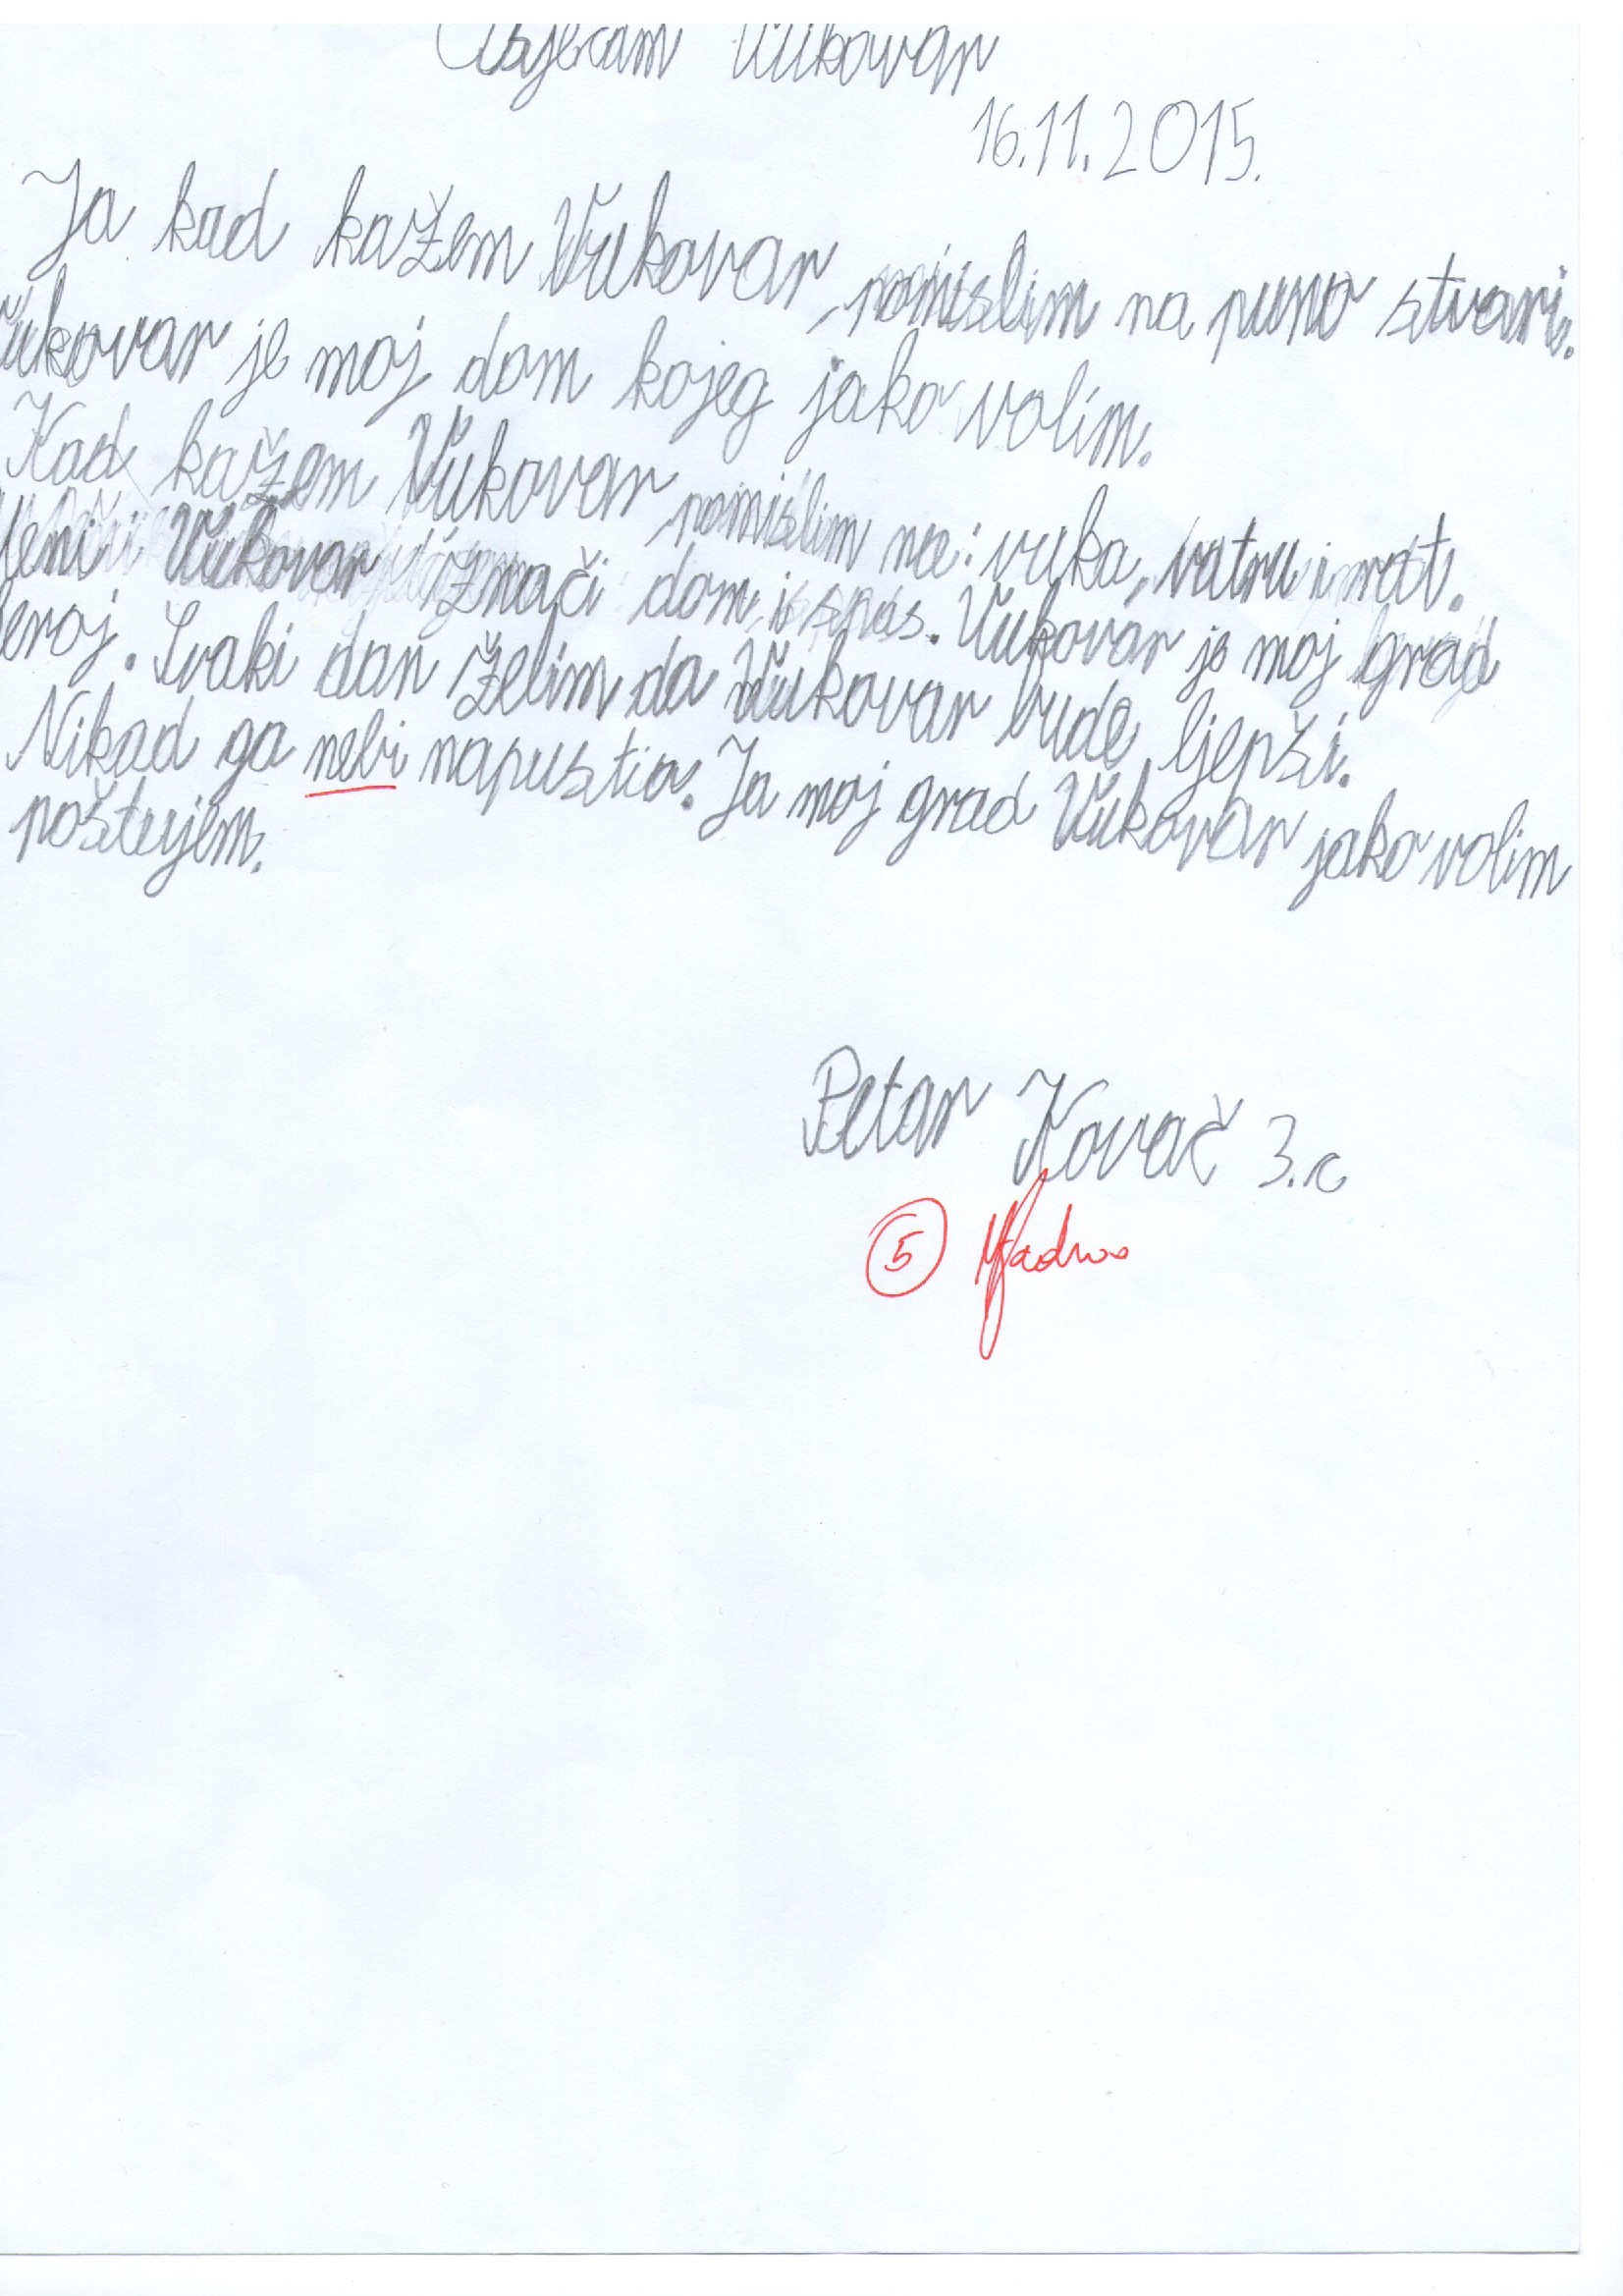 Osjećam Vukovar
16.11.2015.
Ja kad kažem Vukovar, pomislim na puno stvari.
Vukovar je moj dom kojeg jako volim.
Kad kažem Vukovar pomislim na: vuka, vatru i rat.
Meni Vukovar znači dom i spas. Vukovar je moj grad
heroj. Svaki dan želim da Vukovar bude ljepši.
Nikad ga nebi napustio. Ja moj grad Vukovar jako volim
poštujem.
Petar Kovač 3.c
5